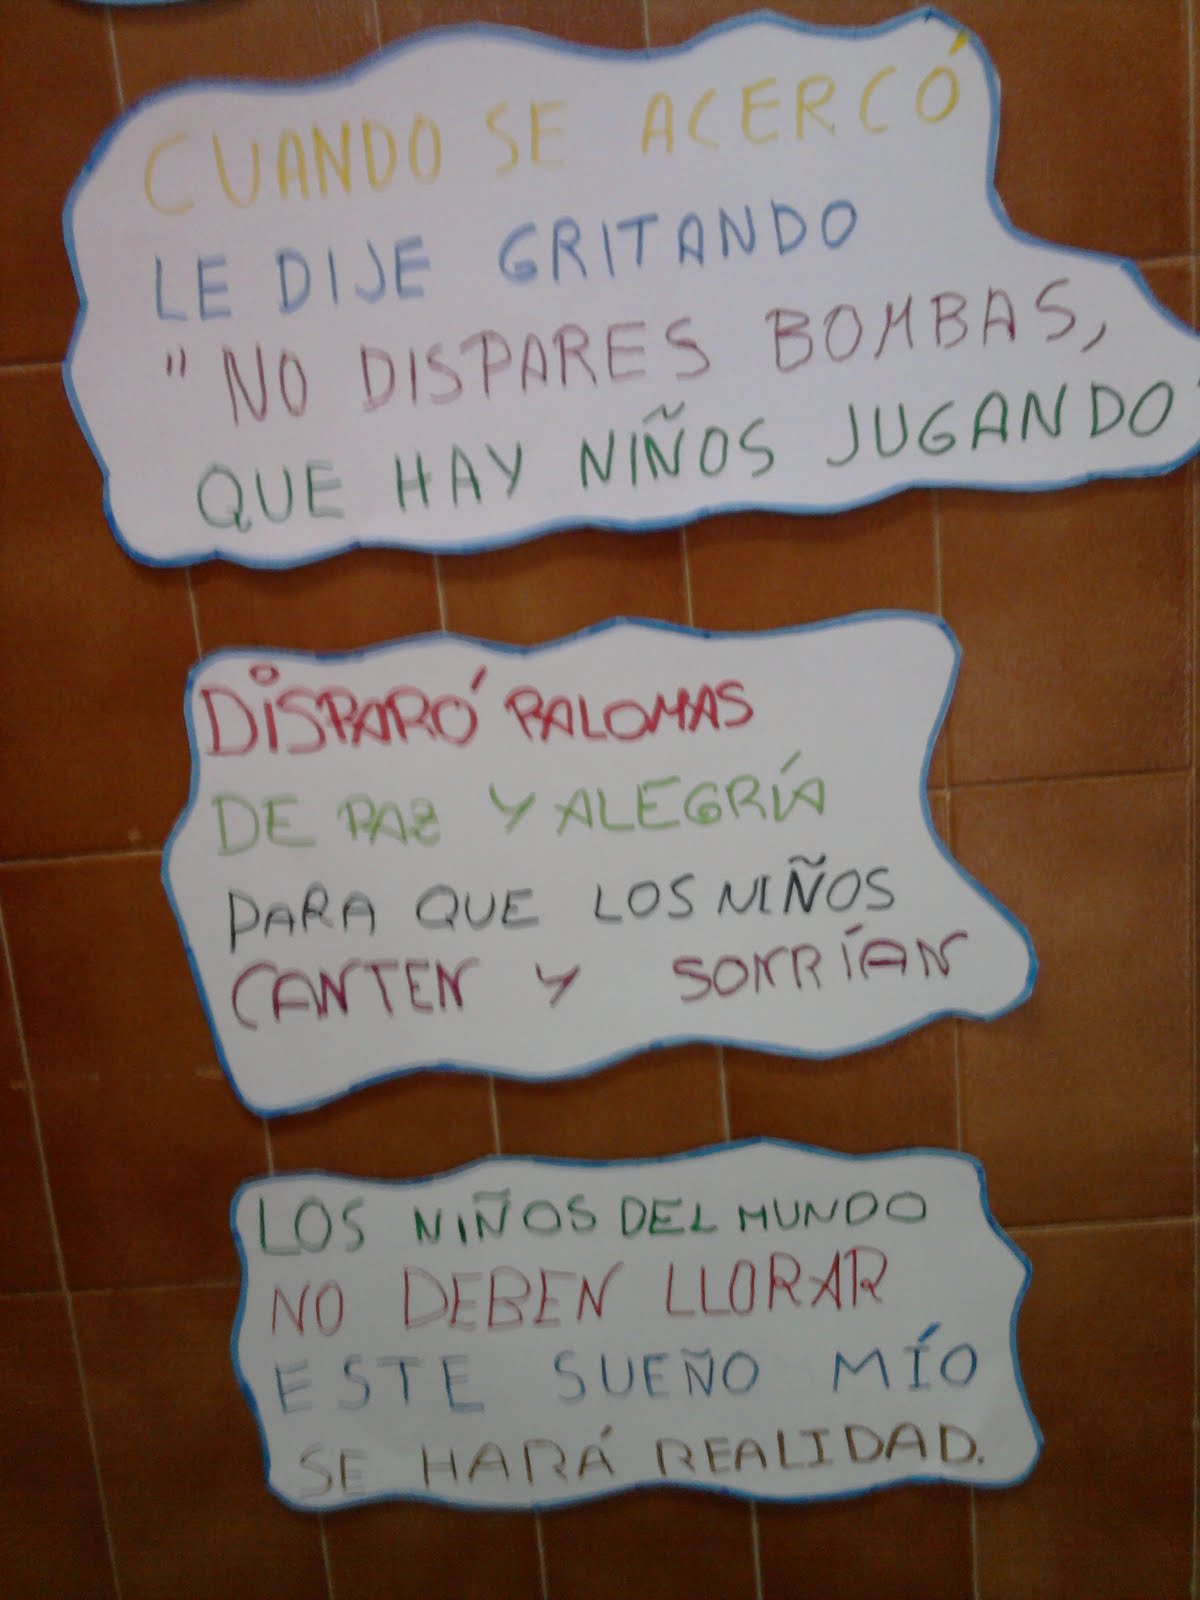 CUANDO SE ACERCÓ
LE DIJE GRITANDO
"NO DISPARES BOMBAS,
QUE HAY NIÑOS JUGANDO"
DISPARÓ PALOMAS
DE PAZ Y ALEGRÍA
PARA QUE LOS NIÑOS
CANTEN Y SONRÍAN
LOS NIÑOS DEL MUNDO
NO DEBEN LLORAR
ESTE SUEÑO MÍO
SE HARÁ REALIDAD.